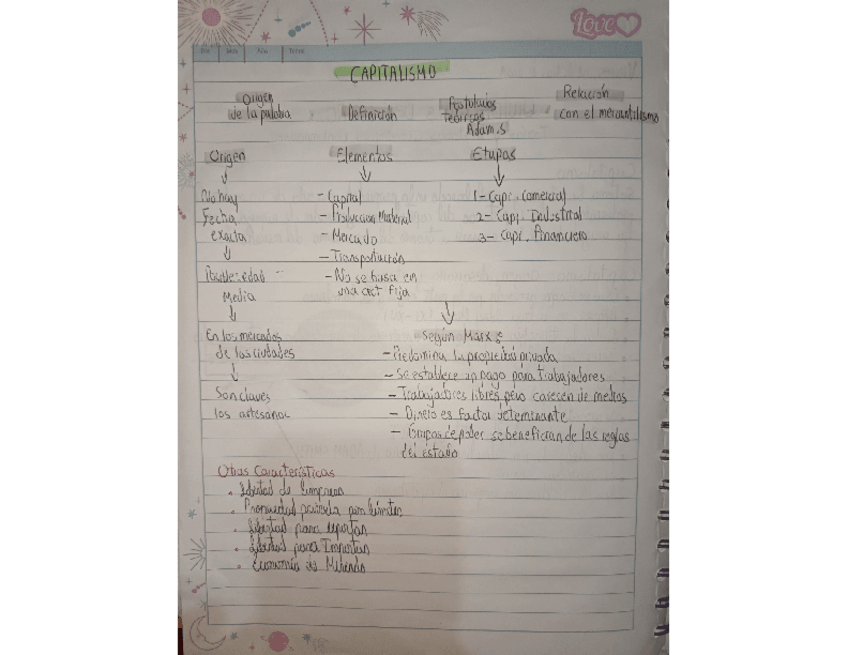 Love
CAPITALISMO
Origen
de la palabra
Definición
Postulados
teóricos
Adam.s
Relación
con el mercantilismo
Origen
No hay
Fecha
exacta
Edad
Media
En los mercados
de las ciudades
Son claves
los artesanos
Elementos
- Capital
- Producción Material
- Mercado
- Transportación
- No se basa en
una act fija
Etapas
1- Capi. Comercial
2- Capi. Industrial
3- Capi. Financiero
Según Marx:
- Predomina la propiedad privada
- Se establece un pago para trabajadores
- Trabajadores libres pero carecen de medios
- Dinero es factor determinante
- Grupos de poder se benefician de las reglas
del estado
Otras Características
. Libertad de Empresa
. Propiedad privada
. Libertad para
. Libertad para Importar
. Economía de Mercado